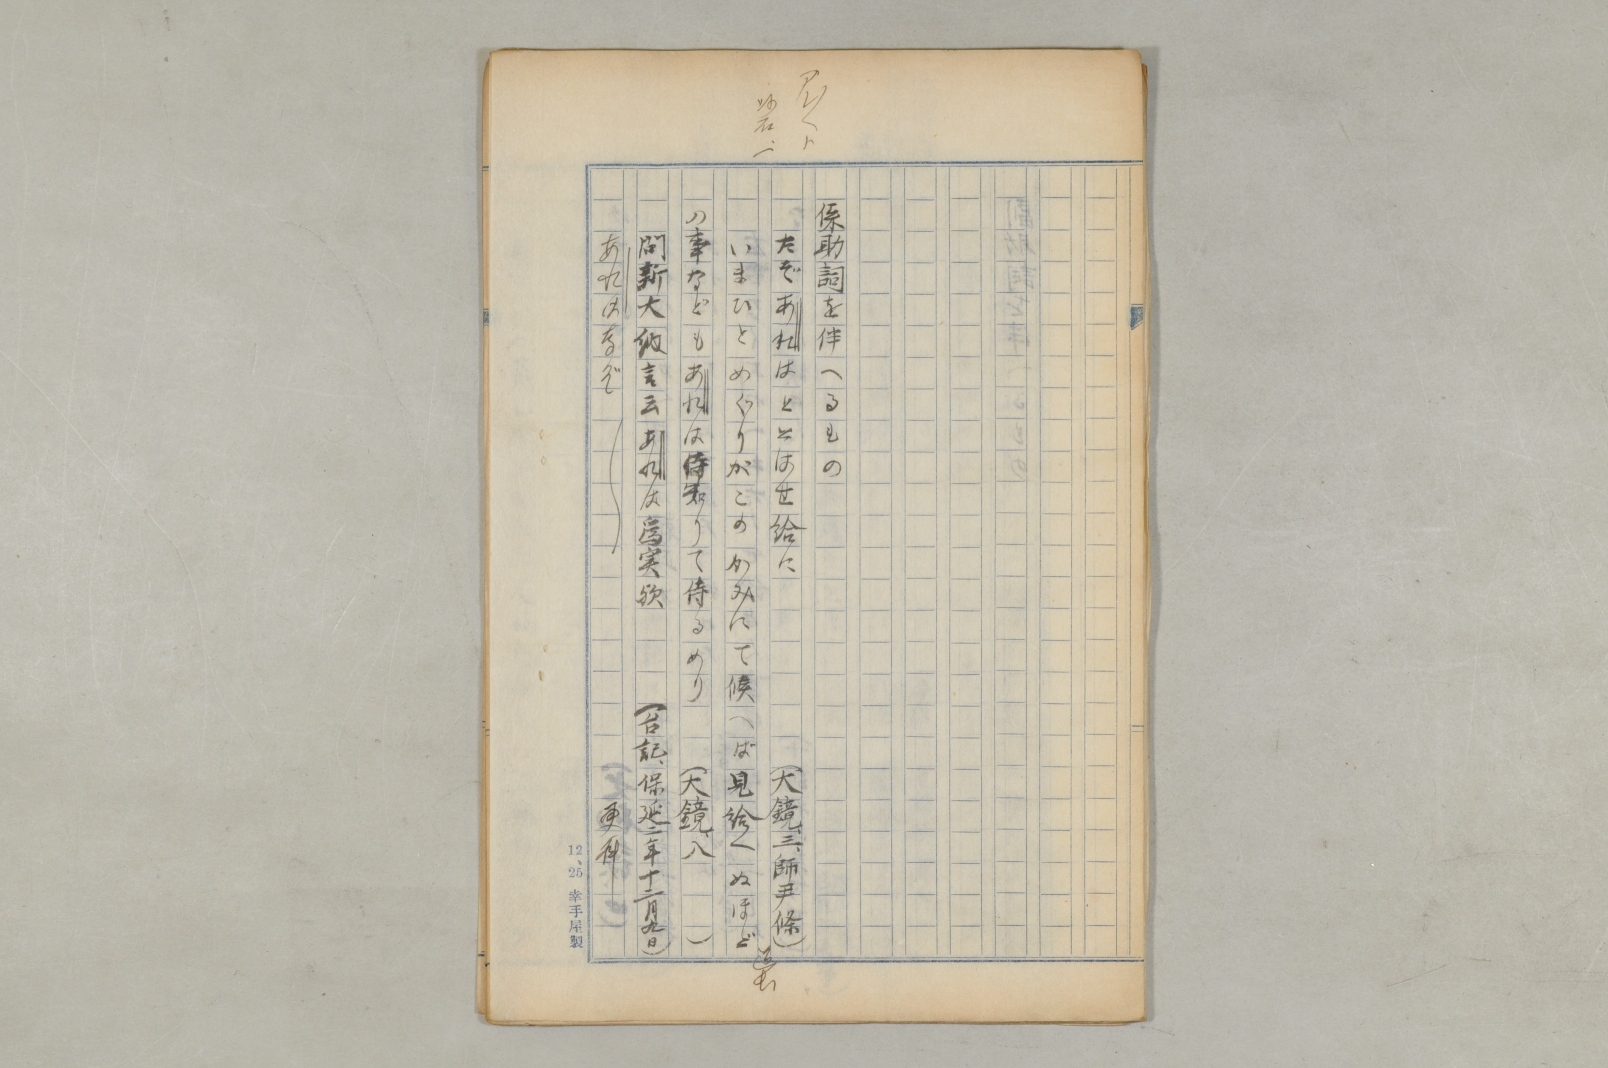 係助詞を伴へるもの
たぞあれはととはせ給に（大鏡、三、師尹條）
いまひとめぐりがこのかみにて候へば見給へぬほど
の事などもあれは侍知りて侍るめり（大鏡、八）
問新大納言云あれは為実歟（台記、保延二年十二月九日）
あれはなぞ　更科
12、25 幸手屋製